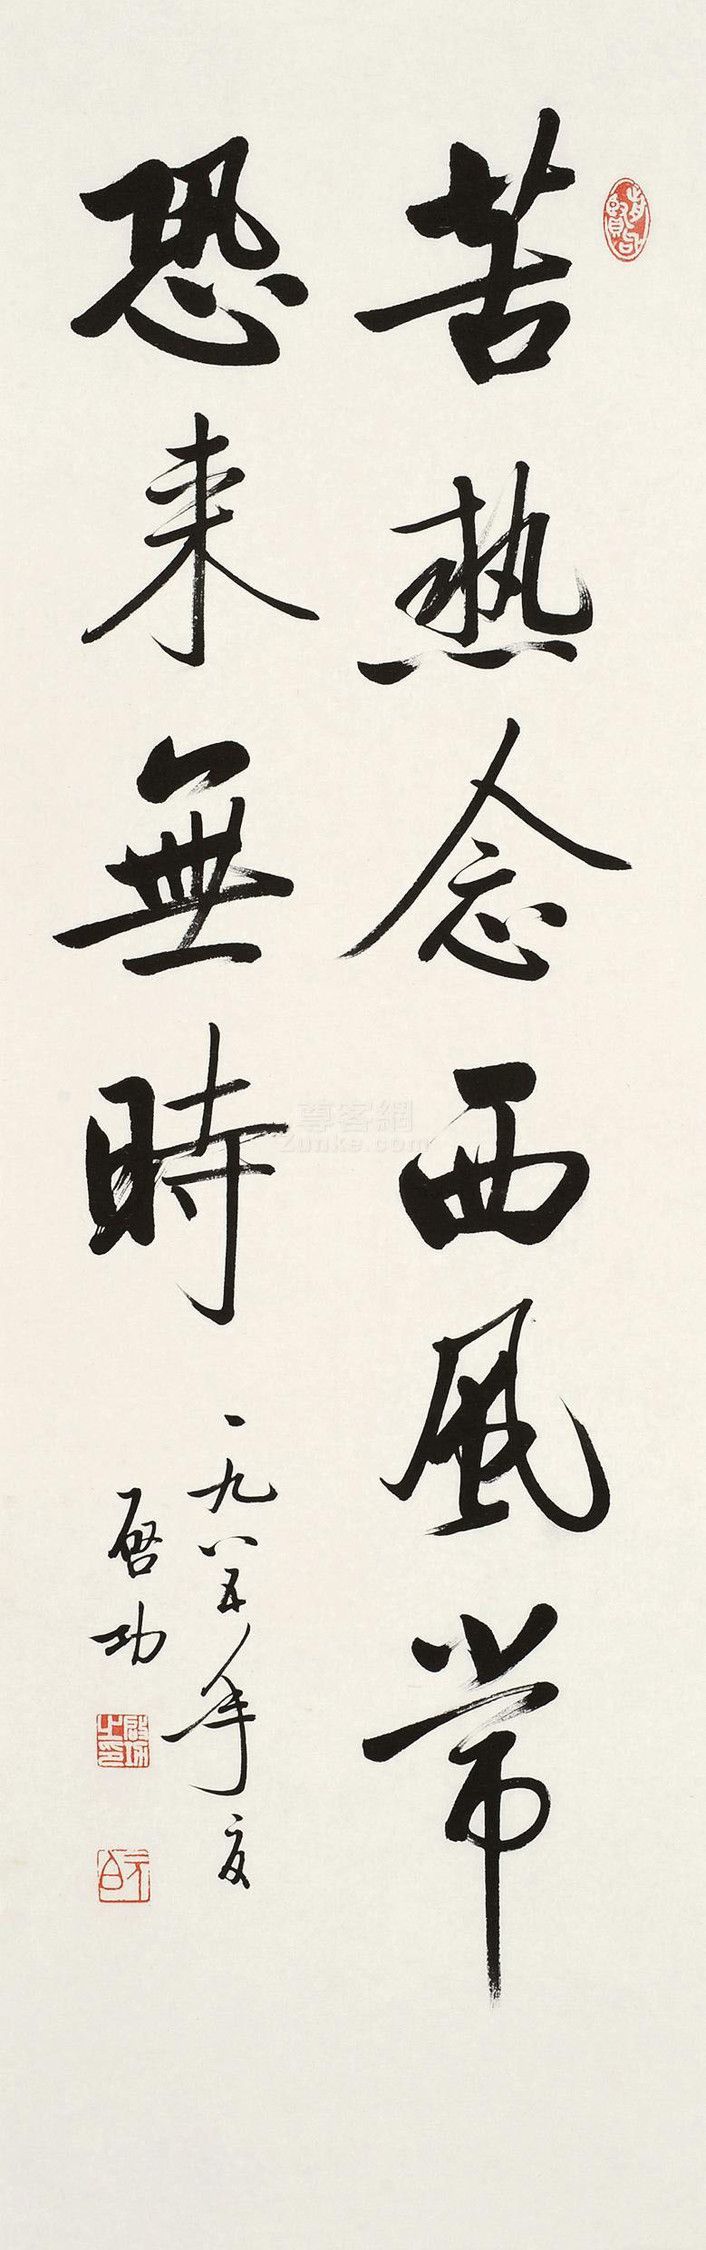 苦热念西風常
恐来無時
一九八五年夏
啓功
啟功之印
元白
尊客網
Zunke.com